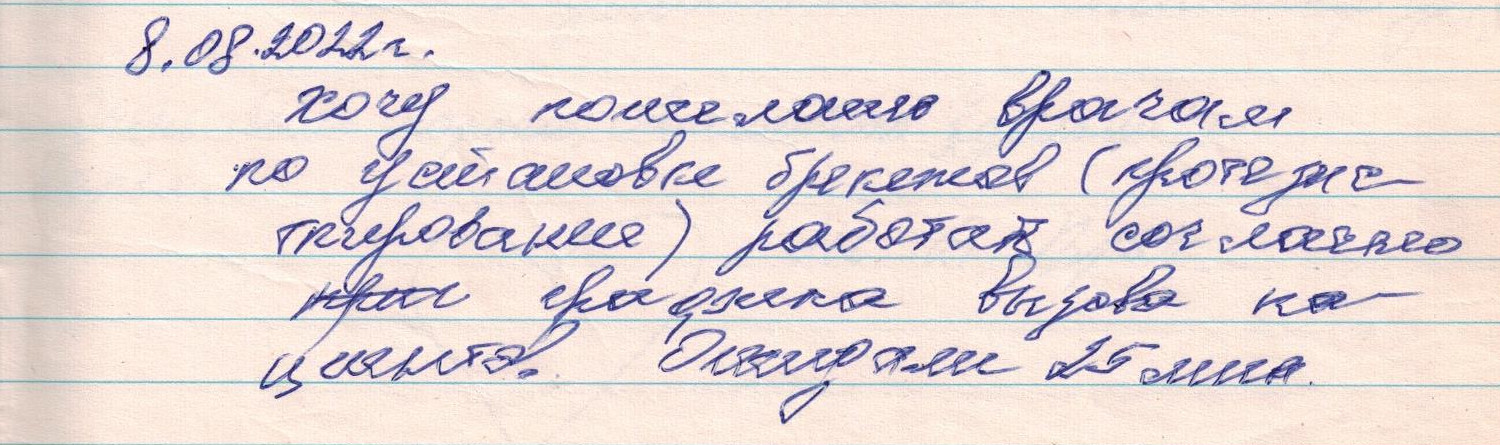 8.08.2022г.
Хочу пожелать врачам
по установке брекетов (протезис-
тирование) работать согласно
графика вызова па-
циентов. Ожидали 25 мин.